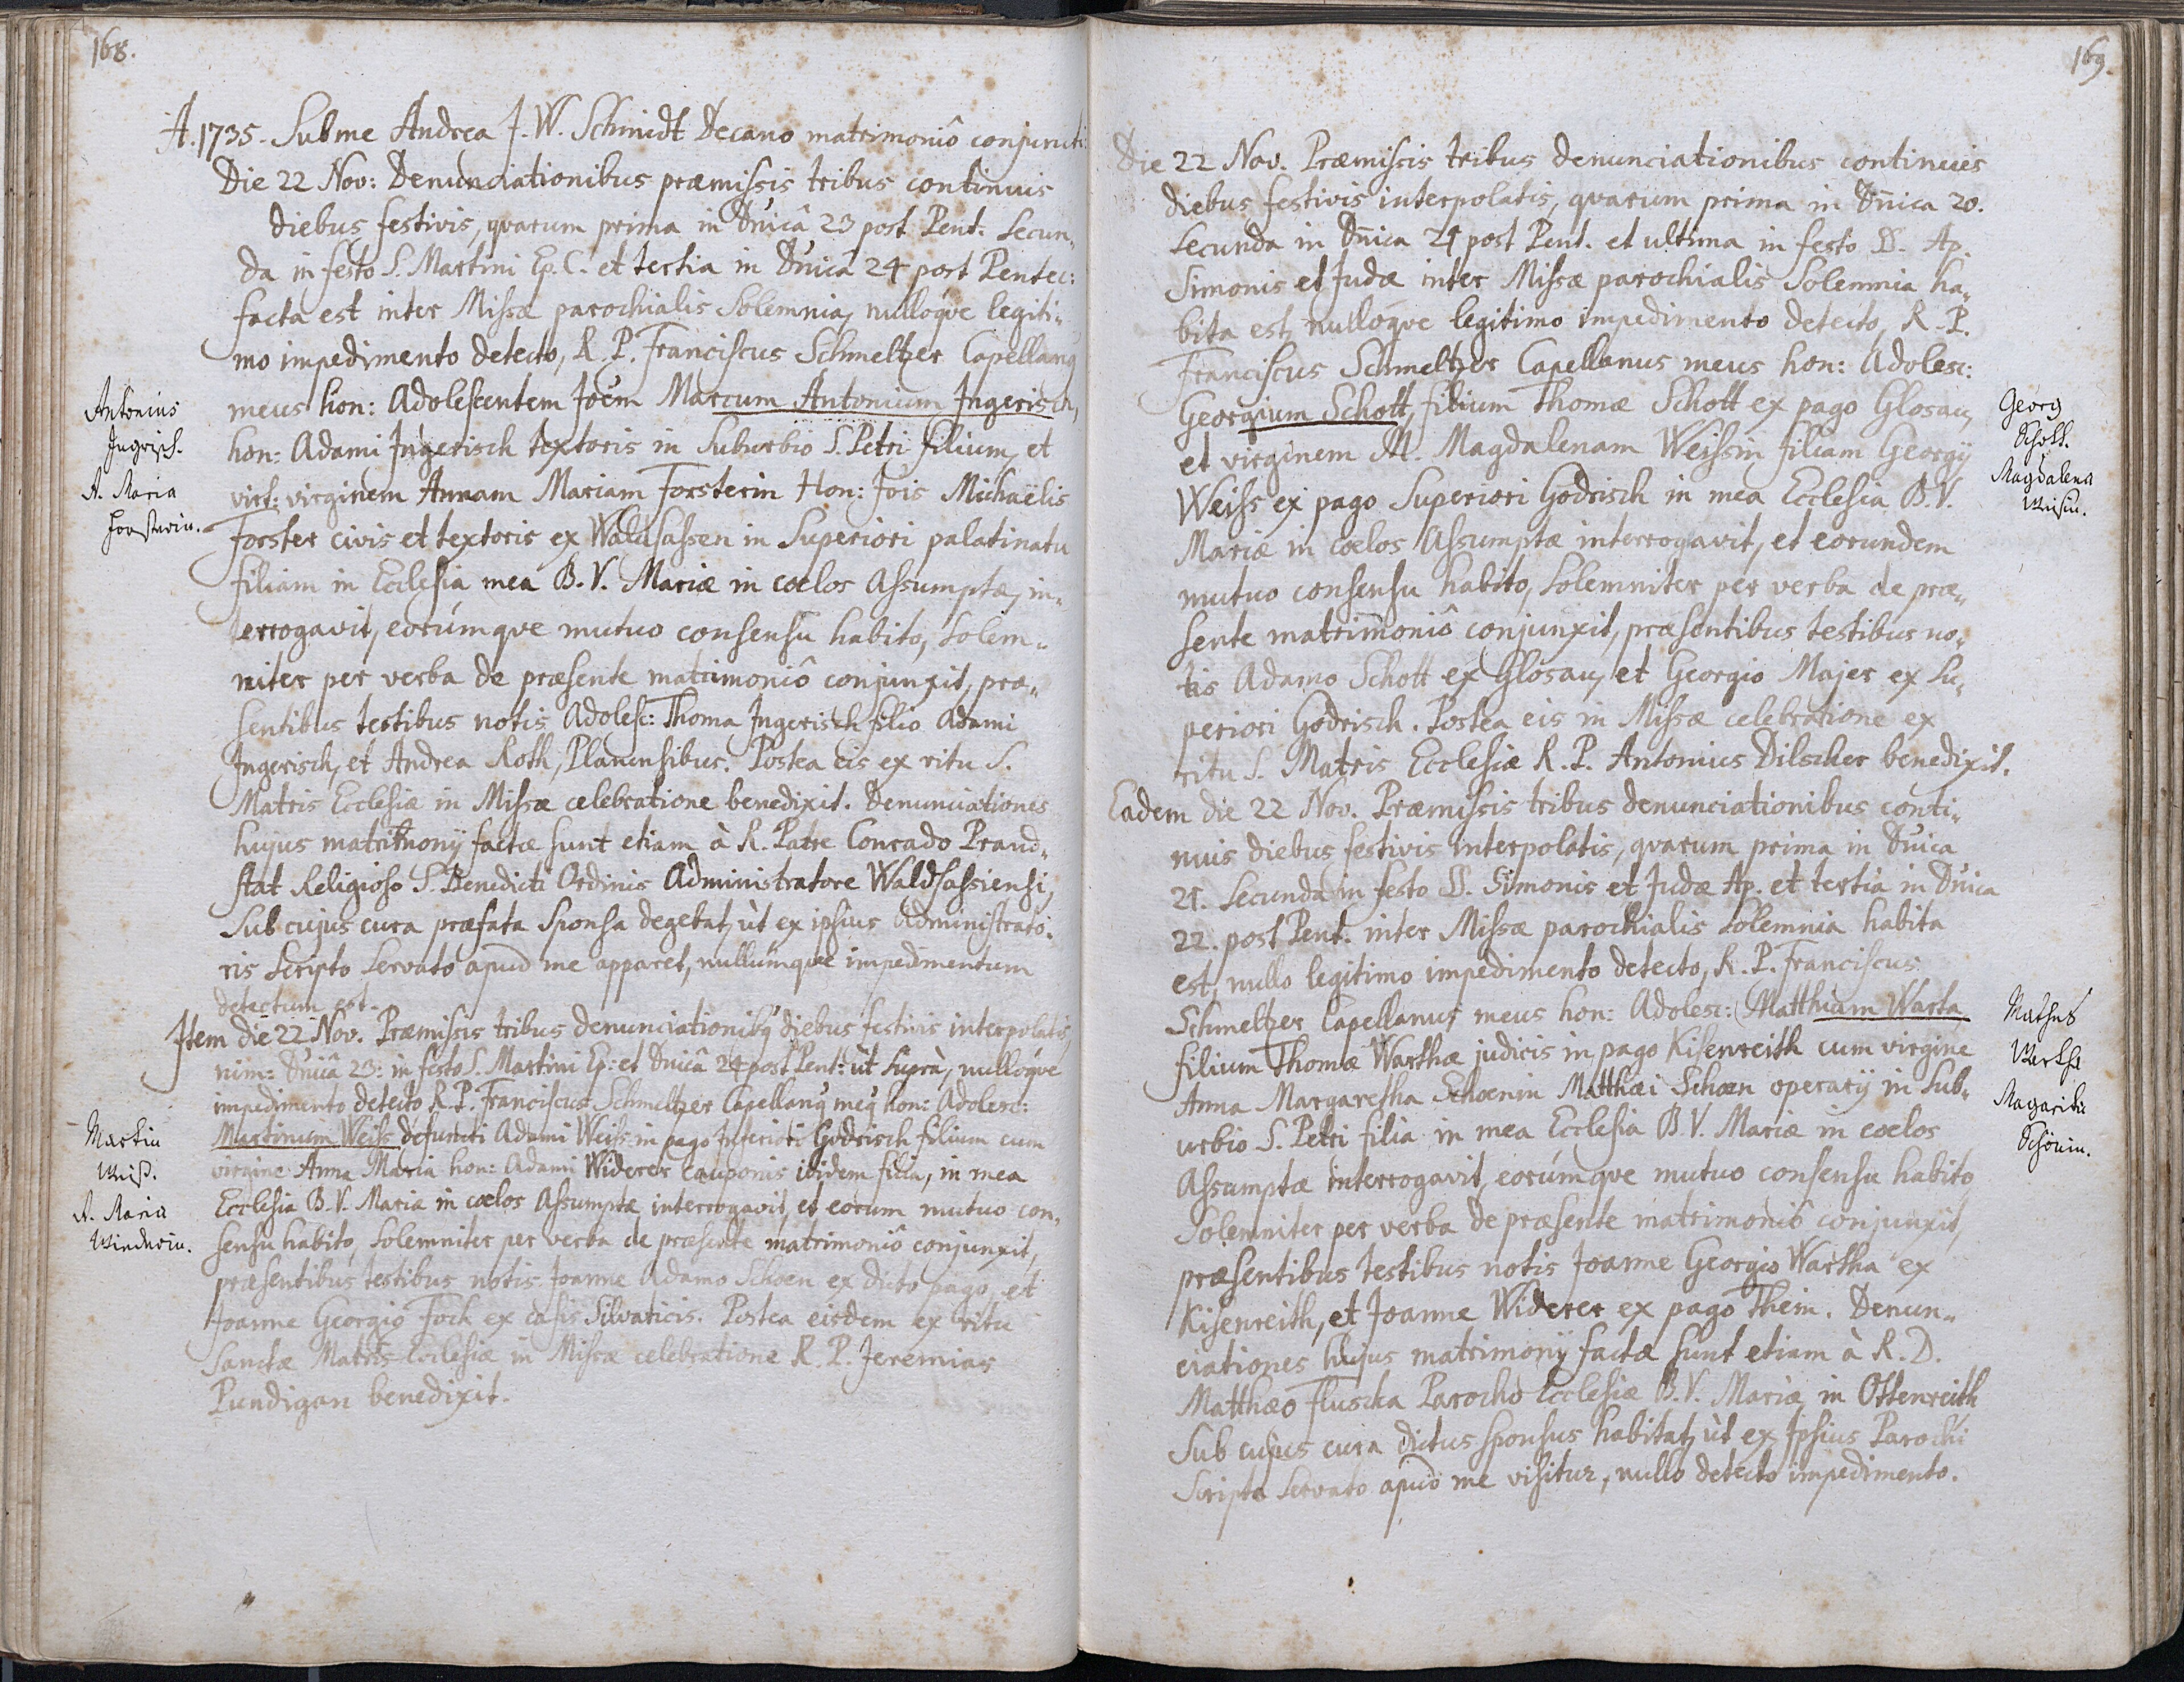 168.
A. 1735. Sub me Andrea J. W. Schmidt Decano matrimoniô conjuncti
Die 22 Nov: Denunciationibus præmissis tribus continuis
diebus festivis, qvarum prima in Dnicâ 23 post Pent: Secun„
da in festo S. Martini Ep. C. et tertia in Dnicâ 24 post Pentec:
facta est inter Missæ parochialis Solemnia, nulloq́ve legiti„
mo impedimento detecto, R. P. Franciscus Schmeltzer Capellanq
meus hon: Adolescentem Joem Marcum Antonium Ingerisch,
hon: Adami Ingerisch textoris in Suburbio S. Petri filium, et
virt: virginem Annam Mariam Forsterin Hon: Jois Michaëlis
Forster civis et textoris ex Waldsassen in Superiori palatinatu
filiam in Ecclesia mea B. V. Mariæ in coelos Assumptæ, in„
terrogavit, eorúmqve mutuo consensu habito, Solem„
niter per verba de præsente matrimoniô conjunxit, præ„
sentibus testibus notis Adolesc: Thoma Ingerisch filio Adami
Ingerisch, et Andrea Roth, Planensibus. Postea eis ex ritu S.
Matris Ecclesiæ in Missæ celebratione benedixit. Denunciationes
hujus matrimonij factæ sunt etiam à R. Patre Conrado Prand„
stat Religioso S. Benedicti Ordinis Administratore Waldsassiensi,
Sub cujus cura præfata Sponsa degebat, ùt ex ipsius Administrato„
ris Scripto Servato apud me apparet, nullúmqve impedimentum
detectum est.
Antonius
Ingrisch.
A. Maria
Forsterin.
Item die 22 Nov. Præmissis tribus denunciationibq diebus festivis interpolatis,
nim: Dnicâ 23: in festo S. Martini Ep: et Dnicâ 24 post Pent: ùt Suprà, nulloq́ve
impedimento detecto R. P. Franciscus Schmeltzer Capellanq meq hon: Adolesc:
Martinum Weiss defuncti Adami Weiss in pago Inferiori Godrisch filium cum
virgine Anna Maria hon: Adami Widerer cauponis ibidem filia, in mea
Ecclesia B. V. Mariæ in coelos Assumptæ interrogavit, et eorum mutuo con„
sensu habito, Solemniter per verba de præsente matrimoniô conjunxit,
præsentibus testibus notis Joanne Adamo Schoen ex dicto pago, et
Joanne Georgio Fock ex casis Silvaticis. Postea eisdem ex ritu
Sanctæ Matris Ecclesiæ in Missæ celebratione R. P. Jeremias
Pundigan benedixit.
Martin
Weiß.
A. Maria
169.
Die 22 Nov. Præmissis tribus denunciationibus continuis
diebus festivis interpolatis, qvarum prima in Dnica 20.
Secunda in Dnica 21 post Pent. et ultima in festo SS. Ap.
Simonis et Judæ inter Missæ parochialis Solemnia ha„
bita est, nulloq́ve legitimo impedimento detecto, R. P.
Franciscus Schmeltzer Capellanus meus hon: Adolesc:
Georgium Schott, filium Thomæ Schott ex pago Glosau,
et virginem M. Magdalenam Weissin filiam Georgij
Weiss ex pago Superiori Godrisch in mea Ecclesia B. V.
Mariæ in coelos Assumptæ interrogavit, et eorundem
mutuo consensu habito, Solemniter per verba de præ„
sente matrimoniô conjunxit, præsentibus testibus no„
tis Adamo Schott ex Glosau, et Georgio Majer ex Su„
periori Godrisch. Postea eis in Missæ celebratione ex
ritu S. Matris Ecclesiæ R. P. Antonius Dilscher benedixit.
Georg
Schott.
Magdalena
Weisin.
Eadem die 22 Nov. Præmissis tribus denunciationibus conti„
nuis diebus festivis interpolatis, qvarum prima in Dnica
21. Secunda in festo SS. Simonis et Judæ Ap. et tertia in Dnica
22. post Pent. inter Missæ parochialis Solemnia habita
est, nullo legitimo impedimento detecto, R. P. Franciscus
Schmeltzer Capellanus meus hon: Adolesc: Matthiam Warta,
filium Thomæ Warthæ judicis in pago Kisenreith cum virgine
Anna Margaretha Schoenin Matthæi Schoen operarij in Sub„
urbio S. Petri filia in mea Ecclesia B. V. Mariæ in coelos
Assumptæ interrogavit, eorúmqve mutuo consensu habito,
Solemniter per verba de præsente matrimoniô conjunxit,
præsentibus testibus notis Joanne Georgio Wartha ex
Kisenreith, et Joanne Widerer ex pago Thein. Denun„
ciationes hujus matrimonij factæ sunt etiam à R. D.
Matthæo Fluscka Parocho Ecclesiæ B. V. Mariæ in Ottenreith
Sub cujus cura dictus sponsus habitat, ùt ex Ipsius Parochi
Scripto Servato apud me visitur, nullo detecto impedimento.
Mathes
Wertha
Magaritha
Schönin.